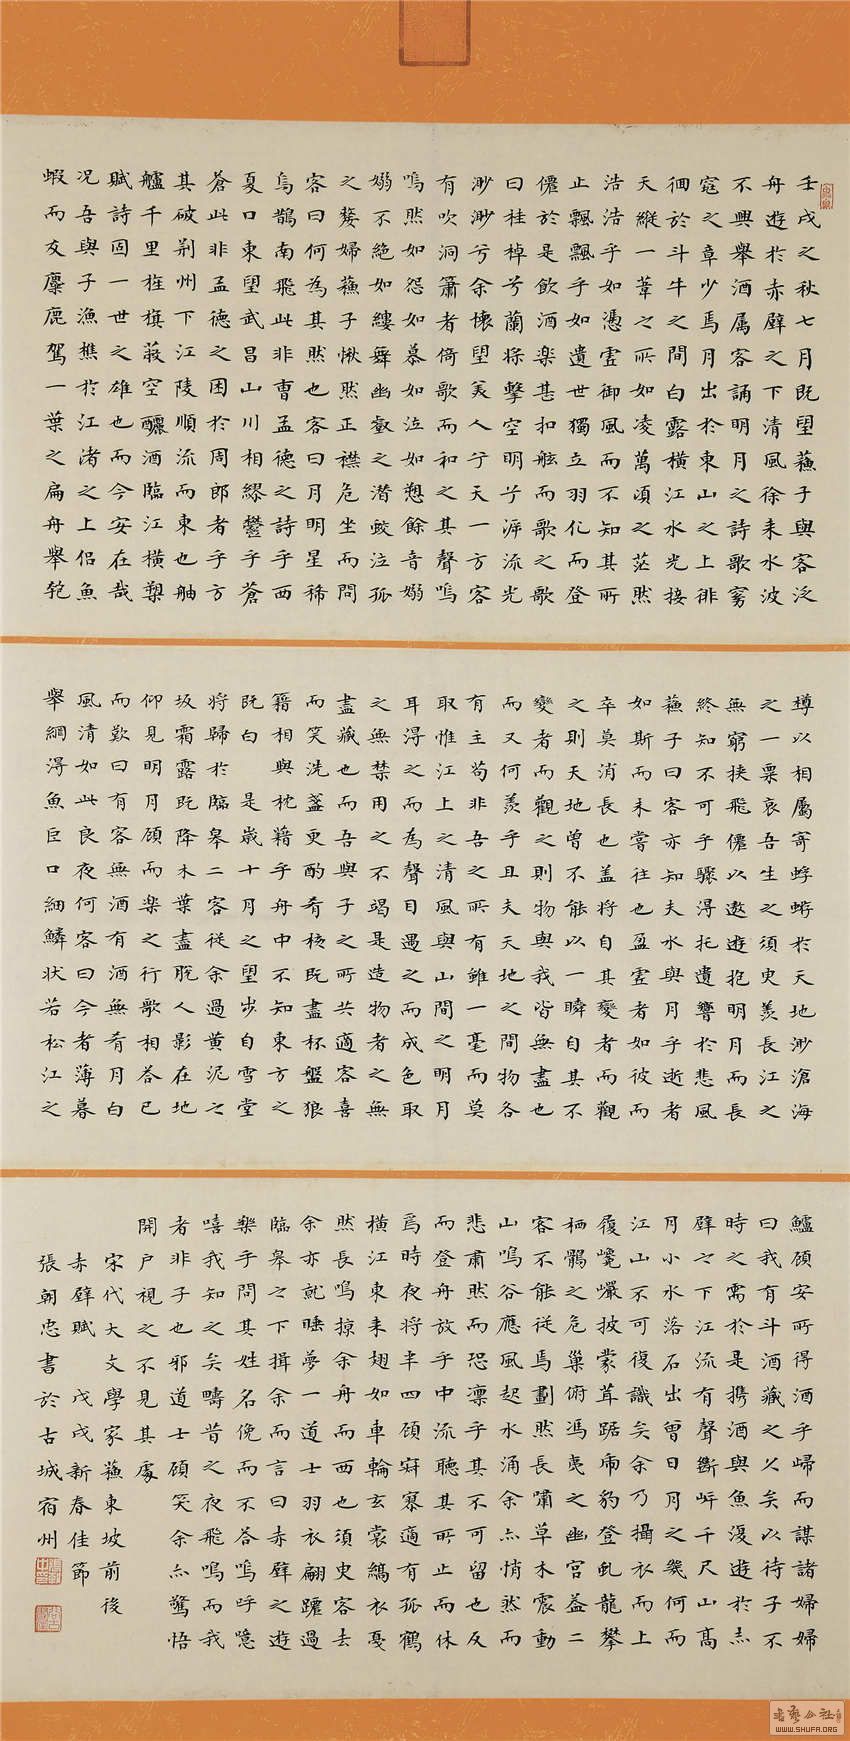 壬戌之秋七月既望蘇子與客泛
舟遊於赤壁之下清風徐来水波
不興舉酒属客誦明月之詩歌窈
窕之章少焉月出於東山之上徘
徊於斗牛之間白露橫江水光接
天縱一葦之所如凌萬頃之茫然
浩浩乎如憑虛御風而不知其所
止飄飄乎如遺世獨立羽化而登
僊於是飲酒樂甚扣舷而歌之歌
曰桂棹兮蘭槳擊空明兮泝流光
渺渺兮余懷望美人兮天一方客
有吹洞簫者倚歌而和之其聲嗚
嗚然如怨如慕如泣如愬餘音嫋
嫋不絕如縷舞幽壑之潛蛟泣孤
之嫠婦蘇子愀然正襟危坐而問
客曰何為其然也客曰月明星稀
烏鵲南飛此非曹孟德之詩乎西
夏口東望武昌山川相繆鬱乎蒼
蒼此非孟德之困於周郎者乎方
其破荆州下江陵順流而東也舳
艫千里旌旗蔽空釃酒臨江橫槊
賦詩固一世之雄也而今安在哉
况吾與子漁樵於江渚之上侶魚
蝦而友麋鹿駕一葉之扁舟舉匏
樽以相屬寄蜉蝣於天地渺滄海
之一粟哀吾生之須臾羨長江之
無窮挾飛僊以遨遊抱明月而長
終知不可乎驟得托遺響於悲風
蘇子曰客亦知夫水與月乎逝者
如斯而未嘗往也盈虛者如彼而
卒莫消長也盖將自其變者而觀
之則天地曾不能以一瞬自其不
變者而觀之則物與我皆無盡也
而又何羨乎且夫天地之間物各
有主苟非吾之所有雖一毫而莫
取惟江上之清風與山間之明月
耳得之而為聲目遇之而成色取
之無禁用之不竭是造物者之無
盡藏也而吾與子之所共適客喜
而笑洗盞更酌肴核既盡杯盤狼
籍相與枕藉乎舟中不知東方之
既白 是歲十月之望步自雪堂
將歸於臨皋二客從余過黄泥之
坂霜露既降木葉盡脫人影在地
仰見明月顧而樂之行歌相答已
而歎曰有客無酒有酒無肴月白
風清如此良夜何客曰今者薄暮
舉網得魚巨口細鱗狀若松江之
鱸顧安所得酒乎歸而謀諸婦婦
曰我有斗酒藏之久矣以待子不
時之需於是携酒與魚復遊於赤
壁之下江流有聲斷岸千尺山高
月小水落石出曾日月之幾何而
江山不可復識矣余乃攝衣而上
履巉巖披蒙茸踞虎豹登虬龍攀
栖鶻之危巢俯馮夷之幽宮蓋二
客不能從焉劃然長嘯草木震動
山鳴谷應風起水涌余亦悄然而
悲肅然而恐凜乎其不可留也反
而登舟放乎中流聽其所止而休
焉時夜將半四顧寂寥適有孤鶴
橫江東来翅如車輪玄裳縞衣戛
然長鳴掠余舟而西也須臾客去
余亦就睡夢一道士羽衣翩躚過
臨皋之下揖余而言曰赤壁之遊
樂乎問其姓名俛而不答嗚呼噫
嘻我知之矣疇昔之夜飛鳴而我
者非子也邪道士顧笑余亦驚悟
開户視之不見其處
宋代大文學家蘇東坡前後
赤壁賦 戊戌新春佳節
張朝忠書於古城宿州
WWW.SHUFA.ORG